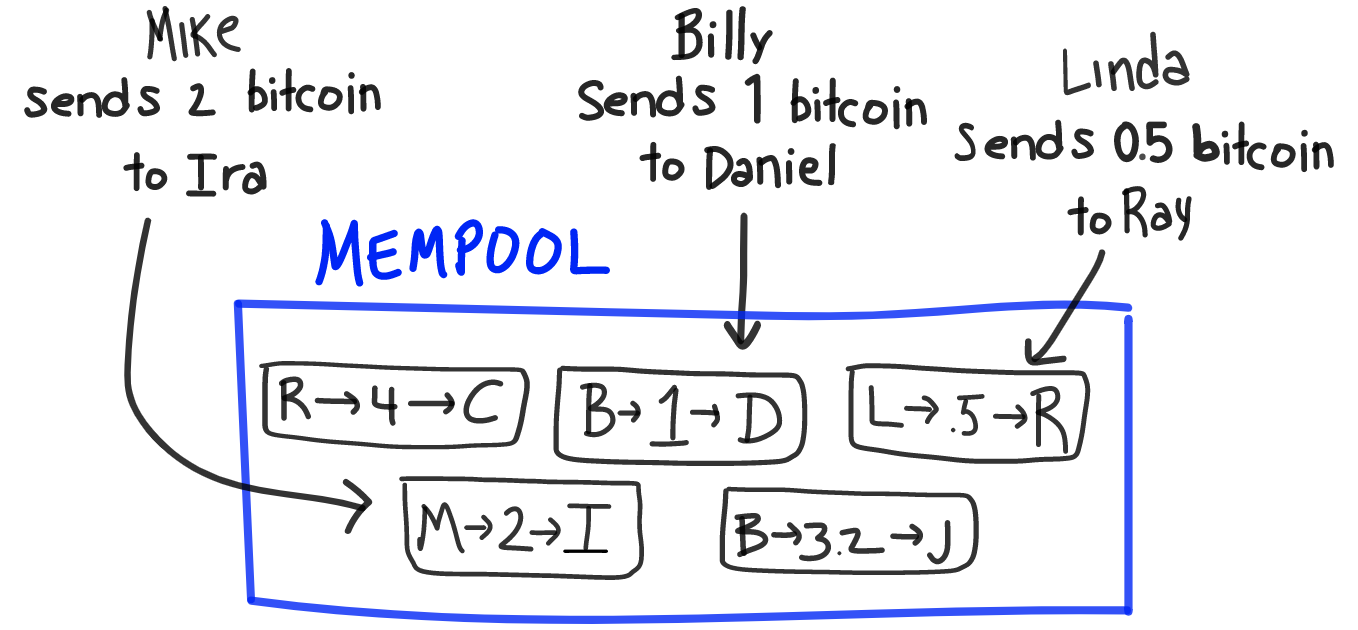 Mike
sends 2 bitcoin
to Ira
Billy
Sends 1 bitcoin
to Daniel
Linda
Sends 0.5 bitcoin
to Ray
MEMPOOL
R→4→C
B→1→D
L→.5→R
M→2→I
B→3.2→J